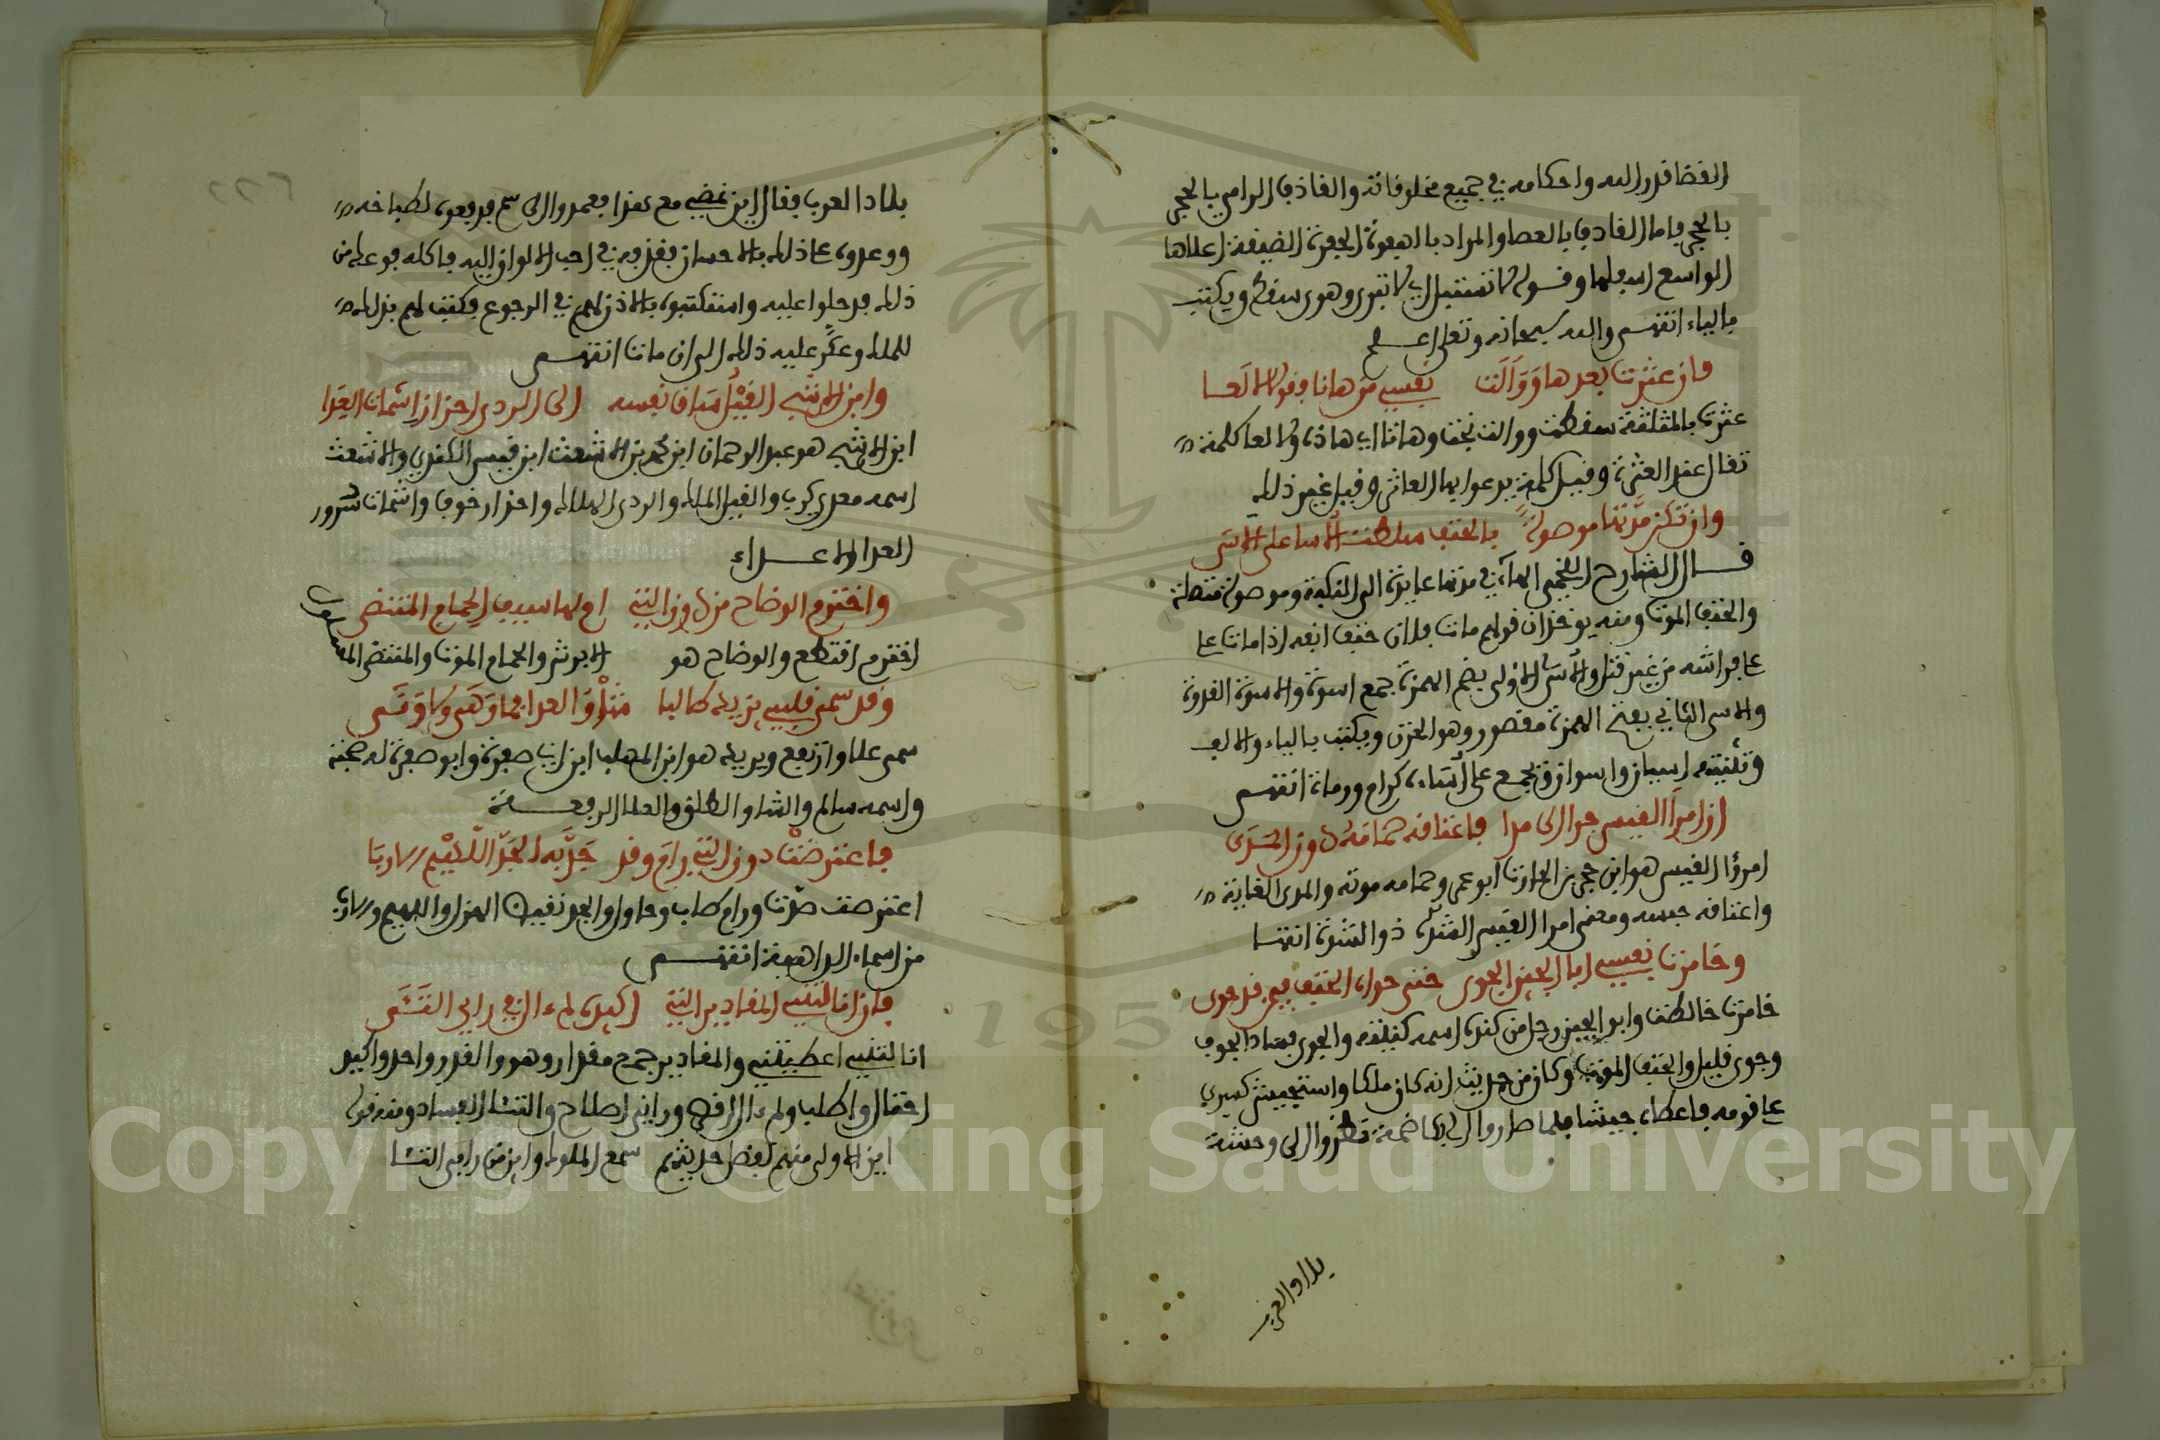 القضا قدر الله واحكامه في جميع مخلوقاته والقاذف الرامي بالحجر
بالحجر واما القادف بالعصا والمراد بالهوة الحفرة الضيقة اعلاها
الواسع اسفلها وقوله لا تستقبل اي لا تبرى وهوى سقط ويكتب
بالياء انتهى والله سبحانه وتعلى اعلم
فان عثرت بعدها ووالت نفسي من هاتا فقولا لا لعا
عثرت بالمثلثة سقطت ووالت نجت وهاتا اي هاذه ولا لعا كلمة
تقال عند العثرة وقيل كلمة يدعوا بها العاثر وقيل غير ذلك
وان تكن مدتها موصولة بالحتف سلطت الاسا على الاسى
قال الشارح اللخمي الهاء في مدتها عايدة الى النكبة وموصولة متصلة
والحتف الموت ومنه يوخذ ان قولهم مات فلان حتف انفه اذا مات على
على فراشه من غير قتل والاسى الاولى بضم الهمزة جمع اسوة والاسوة القدوة
والاسى الثاني بفتح الهمزة مقصور وهو الحزن ويكتب بالياء والالف
وتثنيته اسيان واسوان ويجمع على
ان امرأ القيس جرا الى مدا فاعتاقه حمامه دون المدى
امرؤ القيس هو ابن حجر بن الحارث ابو عمر وحمامه موته والمدى الغاية
واعتاقه حبسه ومعنى امرا القيس الشدة ذو الشدة انتها
وخامرت نفس ابا الجبر الجوى حتى حواه الحتف فيمن قد حوى
خامرت خالطت وابو الجبر رجل من كندة اسمه كنيته والجوى فساد الجوف
وجوى قليل والحتف الموت وكان من حديثه انه كان ملكا واستجيش كسرى
على قومه فاعطاه جيشا فلما صاروا الى كاضمة نظروا الى وحشة
بلاد العرب
بلاد العرب فقال اين نمضي مع هذا فعمدوا الى سم فدفعوه لطباخه
ووعدوه على ذلك بالاحسان فقذفه في احب الالوان اليه فاكله فوعك من
ذلك فدخلوا عليه واستكتبوه بالاذن لهم في الرجوع فكتب لهم بذلك
للملك وعكر عليه ذلك الى ان مات انتهى
وابن الاشج القيل ساق نفسه الى الردى احذار اشمات العدا
ابن الاشج هو عبد الرحمان ابن محمد بن الاشعث ابن قيس الكندي والاشعث
اسمه معدي كرب والقيل الملك والردى الهلاك واحذار خوف واشمات سرور
العدا الاعداء
واخترم الوضاح من دون التي املها سيف الحمام المنتضى
اخترم اقتطع والوضاح هو الابرش والحمام الموت والمنتضى المسلول
وقد سمى قبلي يزيد طالبا شأو العلا فما وهى ولا ونى
سمى علا وارتفع ويزيد هو ابن المهلب ابن ابي صفرة وابو صفرة له صحبة
واسمه سالم والشاو الطلق والعلا الرفعة
فاعترضت دون التي رام وقد جد به الجد اللهيم الاربا
اعترضت صدت ورام طلب وحاول والجد نقيض الهزل واللهيم والاربا
من اسماء الداهية انتهى
فان انالتني المقادير التي اكيده لم ال في راب الثأى
انالتني اعطيتني والمقادير جمع مقدار وهو والقدر واحد واكيد
احتال واطلب ولم ال اقصر وراب اصلاح والثأى الفساد ومنه قول